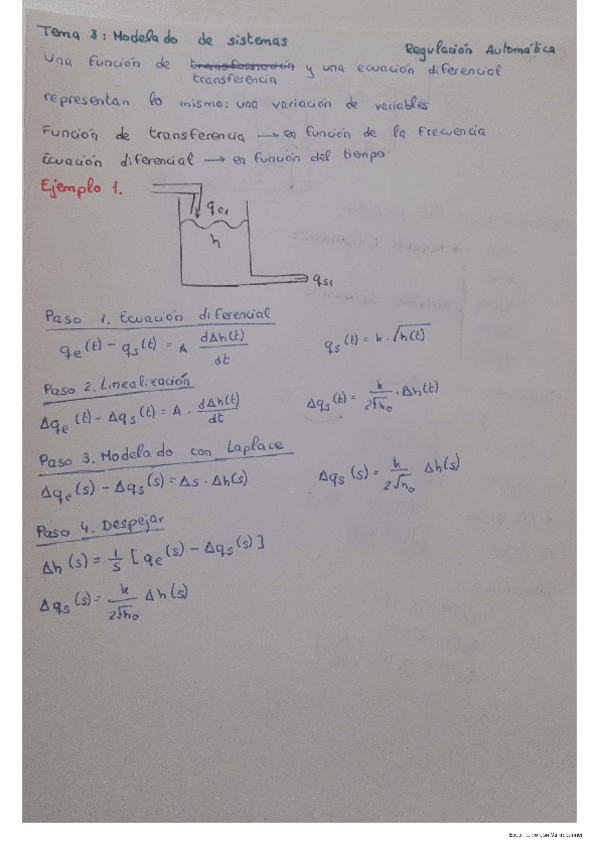 Tema 3: Modelado de sistemas
Regulación Automática
Una función de transformación y una ecuación diferencial
transferencia
representan lo mismo: una variación de variables
Función de transferencia → en función de la frecuencia
Ecuación diferencial → en función del tiempo
Ejemplo 1.
qe1
h
qs1
Paso 1. Ecuación diferencial
qe(t) - qs(t) = A dΔh(t)/dt
qs(t) = k·√h(t)
Paso 2. Linealización
Δqe(t) - Δqs(t) = A · dΔh(t)/dt
Δqs(t) = k/2√h0 · Δh(t)
Paso 3. Modelado con Laplace
Δqe(s) - Δqs(s) = Δs · Δh(s)
Δqs(s) = k/2√h0 Δh(s)
Paso 4. Despejar
Δh(s) = 1/s [qe(s) - Δqs(s)]
Δqs(s) = k/2√h0 Δh(s)